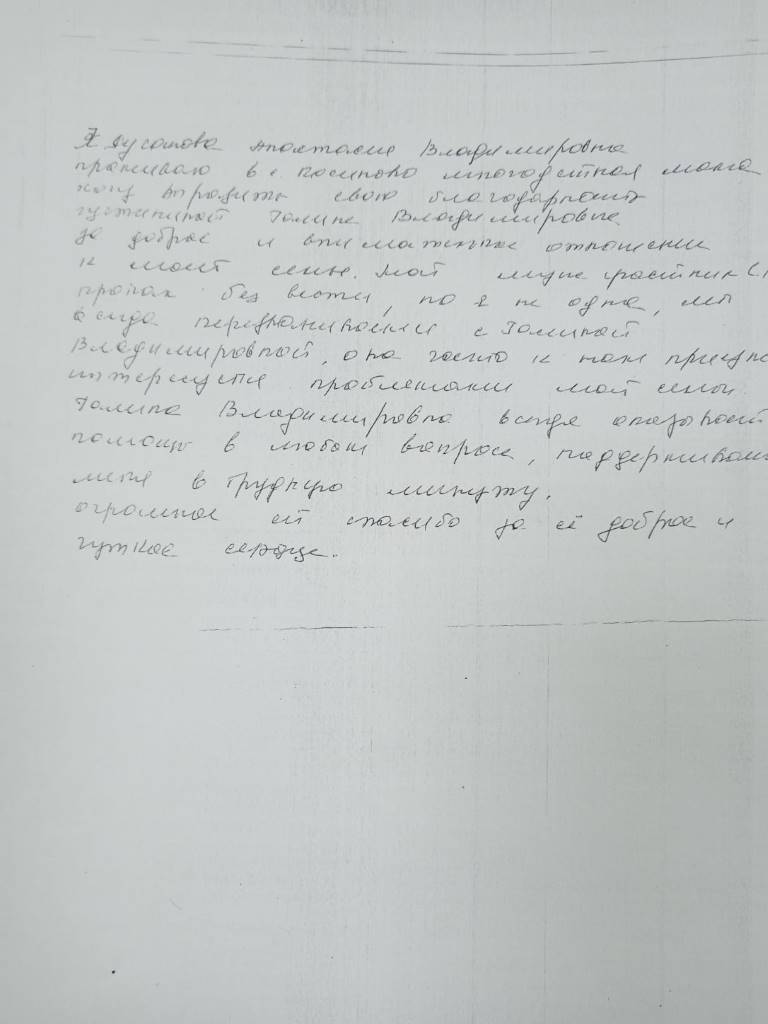 Я Анастасия Владимировна
проживаю в с. многодетная мама
хочу выразить свою благодарность
Галине Владимировне
за доброе и внимательное отношение
к моей семье. Мой муж участник
пропал без вести, но я не одна, мы
всегда с Галиной
Владимировной, она часто к нам
интересуется проблемами моей семьи.
Галина Владимировна всегда оказывает
помощь в любом вопросе, поддерживает
меня в трудную минуту.
огромное ей спасибо за её доброе и
чуткое сердце.